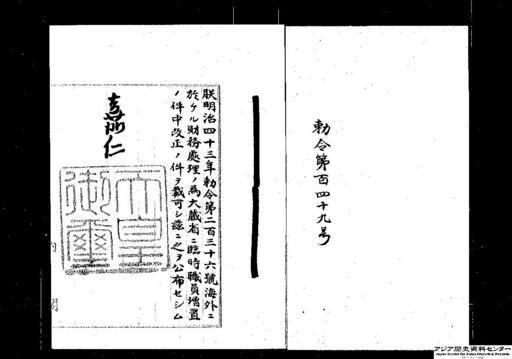 勅令第百四十九号
朕明治四十三年勅令第二百三十六號海外ニ
於ケル財務處理ノ爲大藏省ニ臨時職員増置
ノ件中改正ノ件ヲ裁可シ茲ニ之ヲ公布セシム
嘉仁
天皇御璽
内閣
アジア歴史資料センター
Japan Center for Asian Historical Records